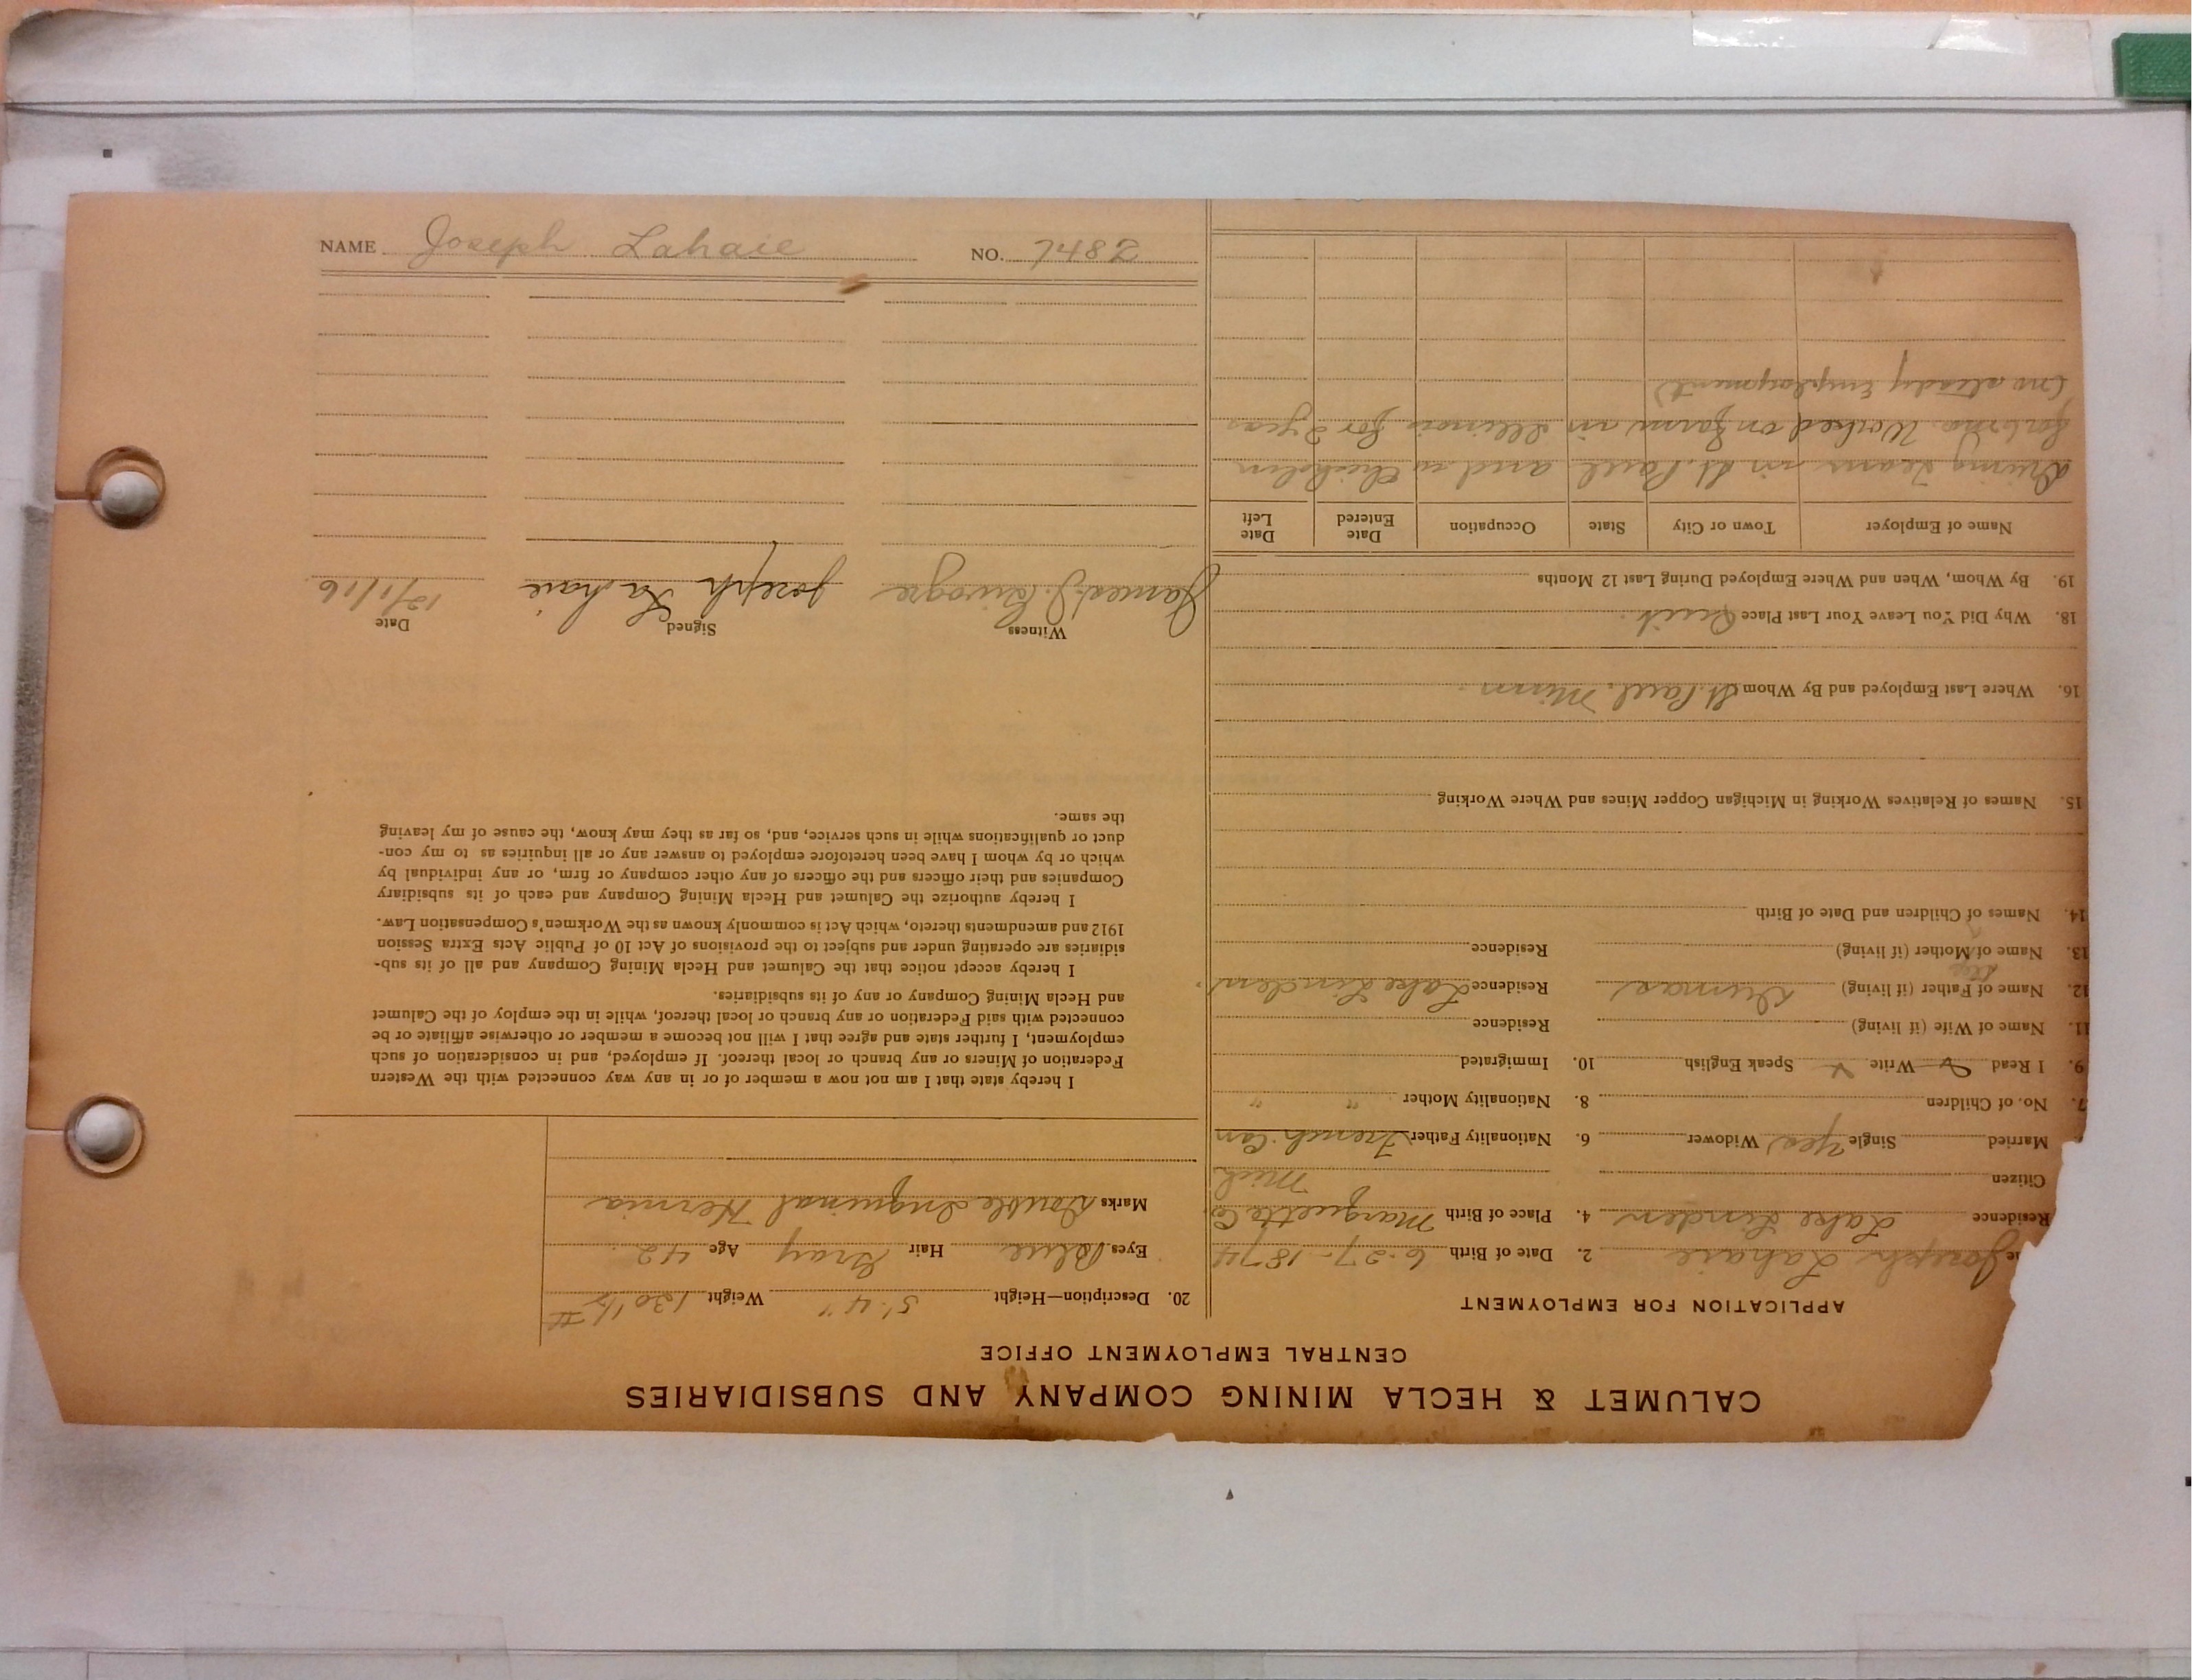 CALUMET & HECLA MINING COMPANY AND SUBSIDIARIES
CENTRAL EMPLOYMENT OFFICE
APPLICATION FOR EMPLOYMENT
Joseph Lahaie 2. Date of Birth 6-27-1874
Residence Lake Linden 4. Place of Birth Marquette Co.
Mich
Citizen
Married Single Yes Widower 6. Nationality Father French Can
7. No. of Children 8. Nationality Mother " "
9. I Read Write Speak English 10. Immigrated
11. Name of Wife (if living) Residence
12. Name of Father (if living) Dumas Residence Lake Linden.
13. Name of Mother (if living) Residence
14. Names of Children and Date of Birth
15. Names of Relatives Working in Michigan Copper Mines and Where Working
16. Where Last Employed and By Whom St. Paul, Minn.
18. Why Did You Leave Your Last Place Quit.
19. By Whom, When and Where Employed During Last 12 Months
Name of Employer Town or City State Occupation Date Entered Date Left
Driving Team in St. Paul and in
Worked on farm in Illinois for 2 years
(no steady Employment)
20. Description—Height 5' 4" Weight 130 1/2 #
Eyes Blue Hair Gray Age 42
Marks Double Inguinal Hernia
I hereby state that I am not now a member of or in any way connected with the Western
Federation of Miners or any branch or local thereof. If employed, and in consideration of such
employment, I further state and agree that I will not become a member or otherwise affiliate or be
connected with said Federation or any branch or local thereof, while in the employ of the Calumet
and Hecla Mining Company or any of its subsidiaries.
I hereby accept notice that the Calumet and Hecla Mining Company and all of its sub-
sidiaries are operating under and subject to the provisions of Act 10 of Public Acts Extra Session
1912 and amendments thereto, which Act is commonly known as the Workmen's Compensation Law.
I hereby authorize the Calumet and Hecla Mining Company and each of its subsidiary
Companies and their officers and the officers of any other company or firm, or any individual by
which or by whom I have been heretofore employed to answer any or all inquiries as to my con-
duct or qualifications while in such service, and, so far as they may know, the cause of my leaving
the same.
Date Signed Witness
12/1/16 Joseph Lahaie James J.
NAME Joseph Lahaie NO. 7482